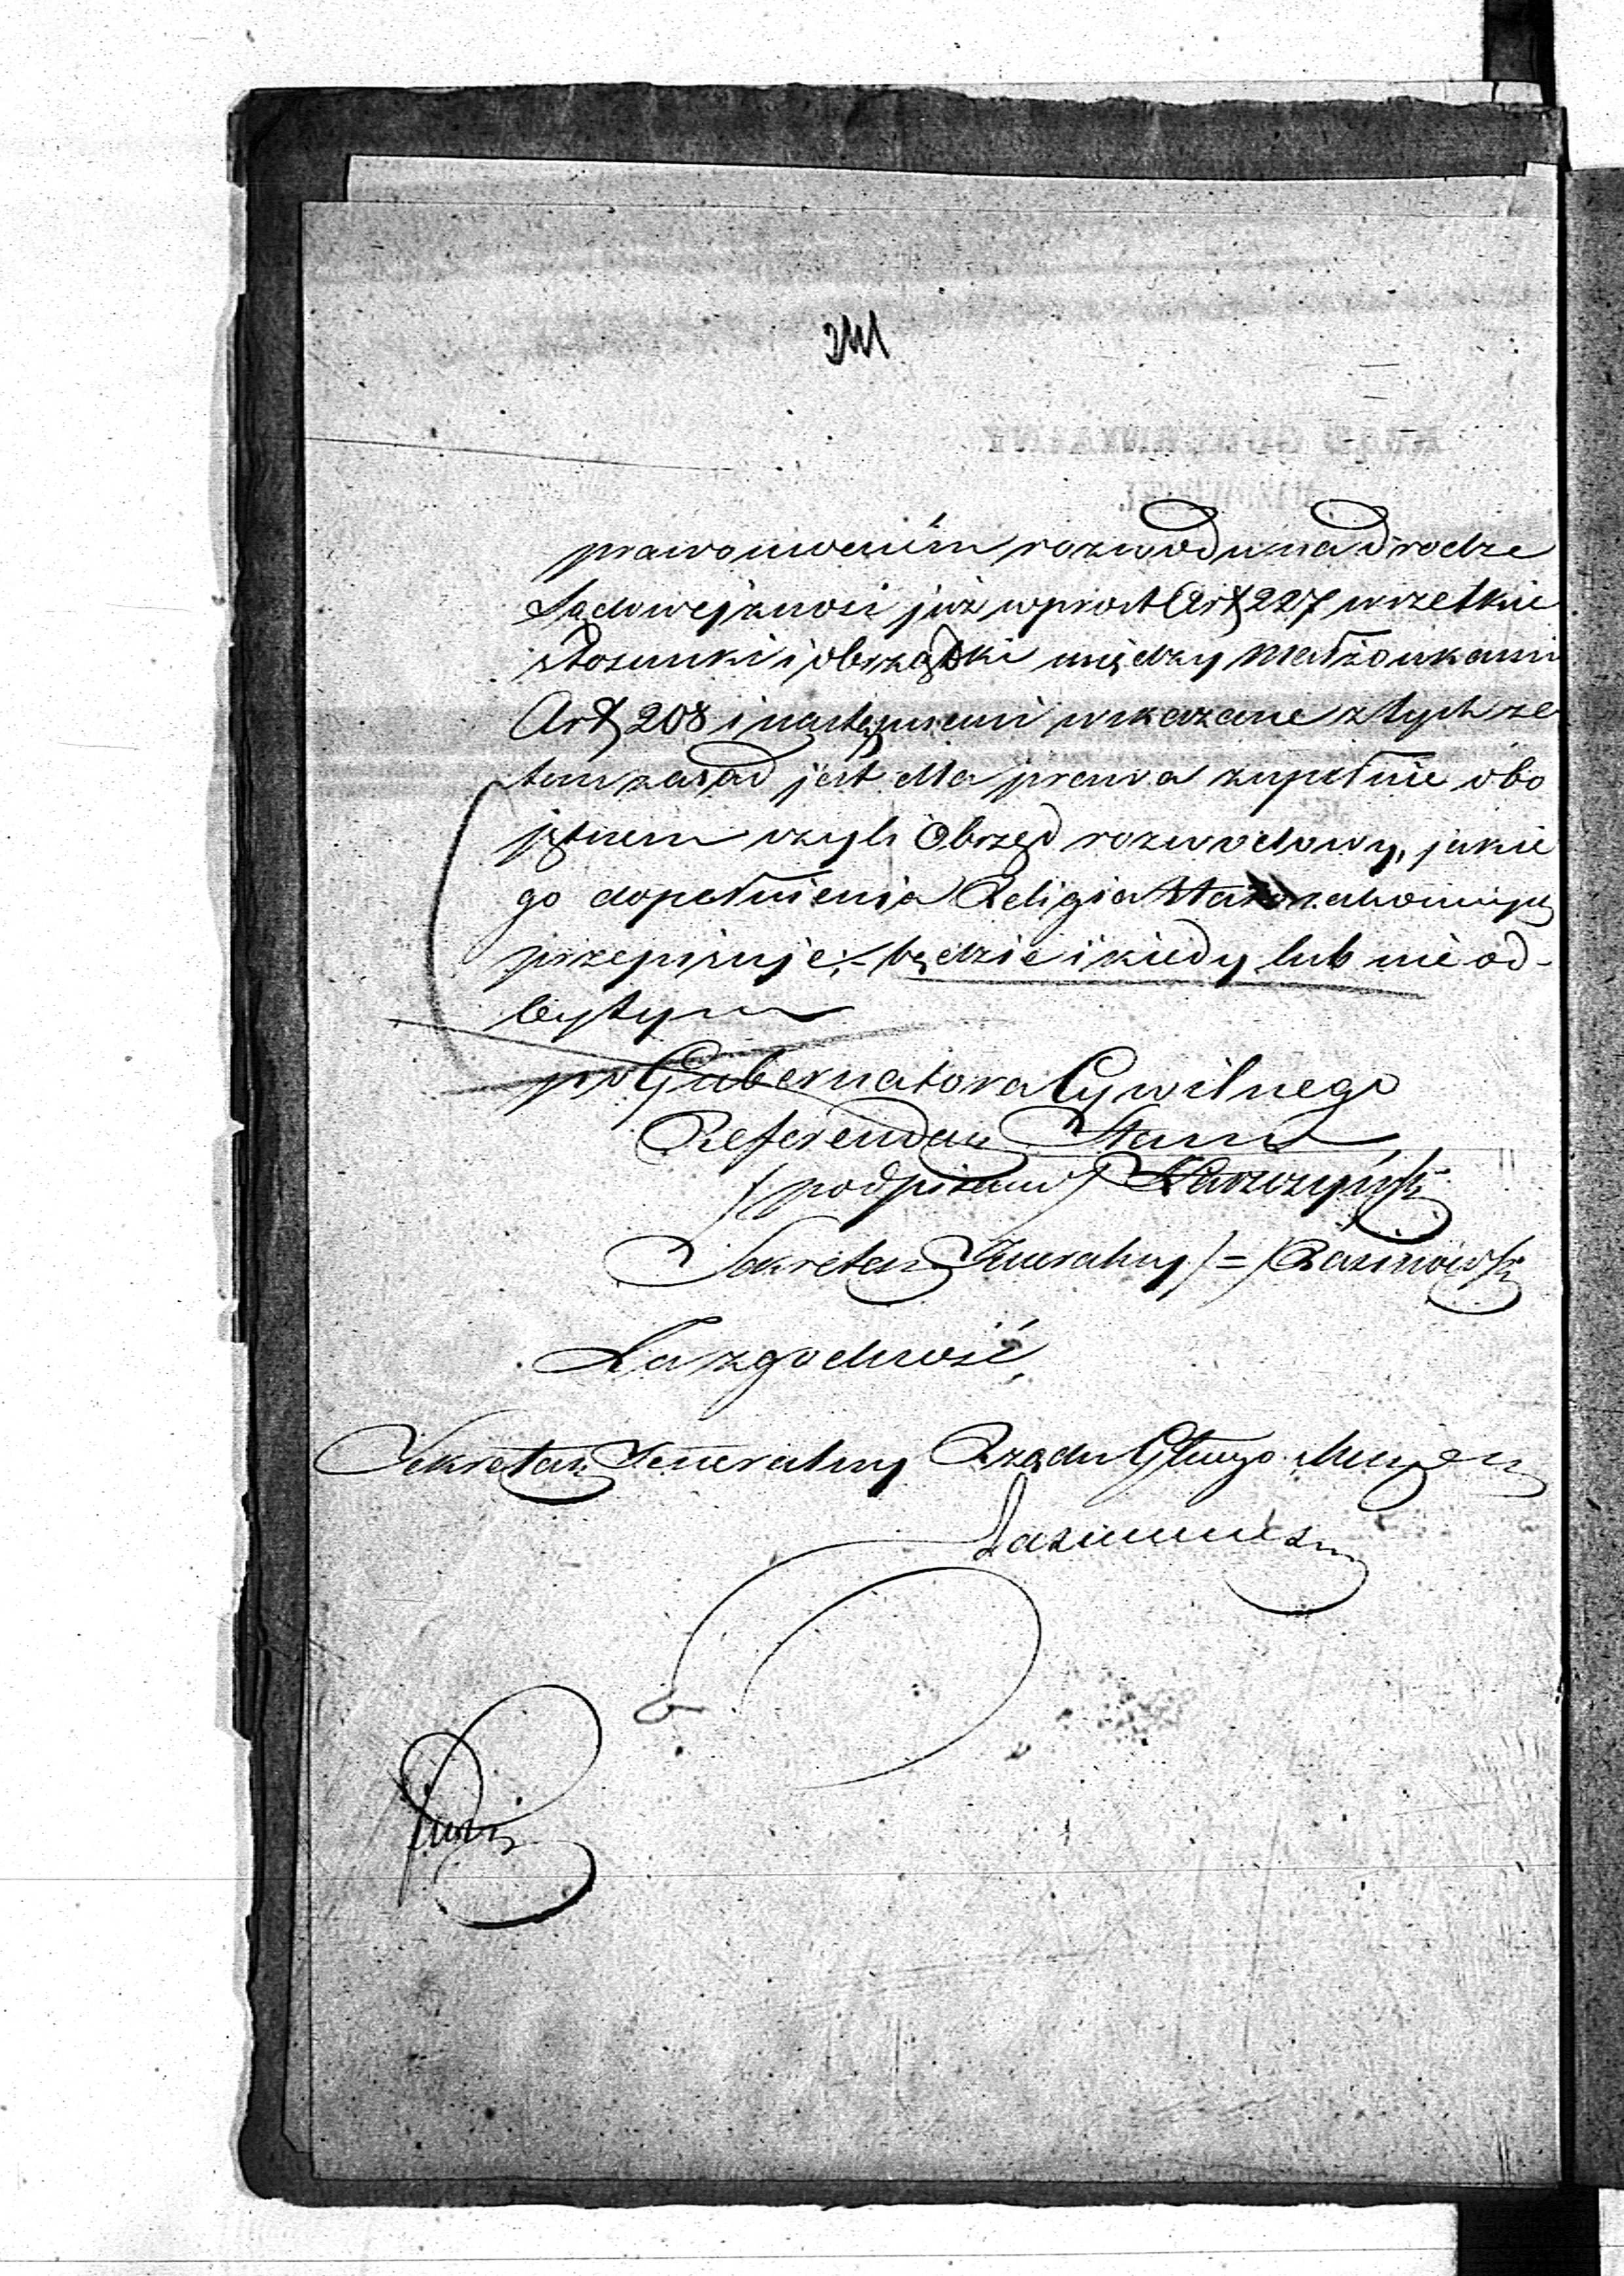 prawomocném rozwodu na drodze
Sądowej znosi już wprost Art 227 wszelkie
stosunki i obrządki między Małżonkami
Art 208 i następnemi wskazane z tych ze
tem zasad jest dla prawa zupełnie obo
jętnem czyli Obrzęd rozwodowy, jakie
go dopełnienia Religia Starozakonnych
przepisuje; będzie i kiedy lub nie od-
bytym
po Gubernatora Cywilnego
Referendarz Stanu
/podpisano/
Sekretarz Jeneralny /=/
Za zgodność,
Sekretarz Jeneralny Rządu